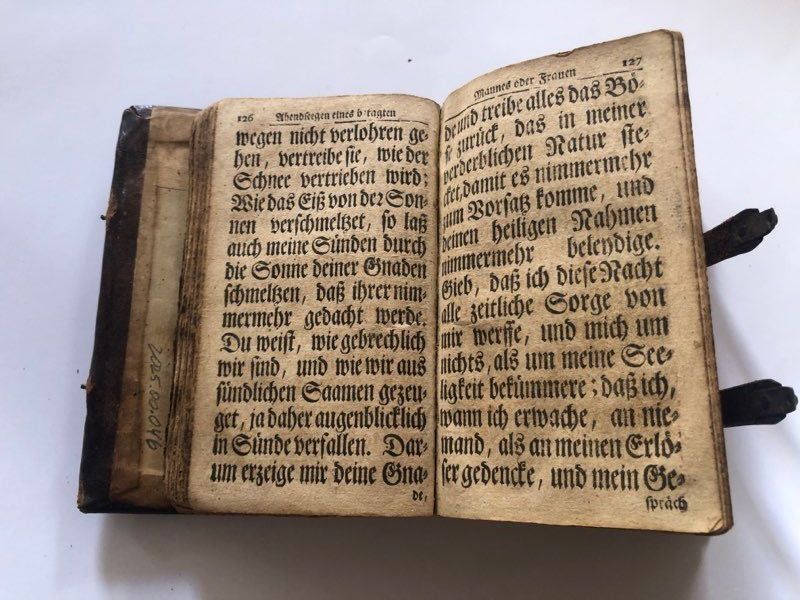 126 Abendseegen eines betagten
wegen nicht verlohren ge-
hen, vertreibe sie, wie der
Schnee vertrieben wird:
Wie das Eiß von der Son-
nen verschmeltzet, so laß
auch meine Sünden durch
die Sonne deiner Gnaden
schmeltzen, daß ihrer nim-
mermehr gedacht werde.
Du weist, wie gebrechlich
wir sind, und wie wir aus
sündlichen Saamen gezeu-
get, ja daher augenblicklich
in Sünde verfallen. Dar-
um erzeige mir deine Gna-
de,
Mannes oder Frauen 127
de und treibe alles das Bö-
se zurück, das in meiner
verderblichen Natur ste-
cket, damit es nimmermehr
zum Vorsatz komme, und
deinen heiligen Nahmen
nimmermehr beleydige.
Gieb, daß ich diese Nacht
alle zeitliche Sorge von
mir werffe, und mich um
nichts, als um meine See-
ligkeit bekümmere; daß ich,
wann ich erwache, an nie-
mand, als an meinen Erlö-
ser gedencke, und mein Ge-
spräch